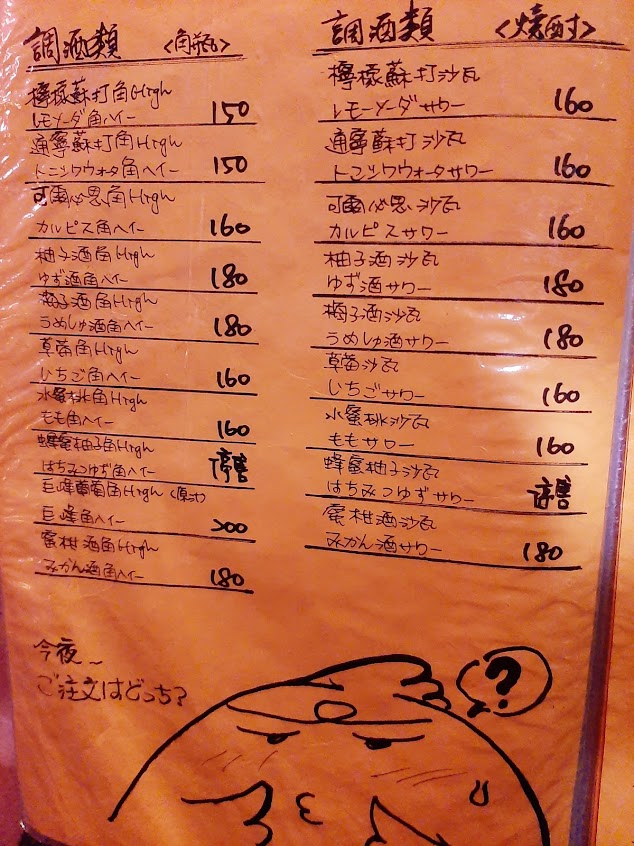 調酒類 <角瓶>
檸檬蘇打角High
レモンソーダ角ハイー 150
通寧蘇打角High
トニックウォータ角ハイー 150
可爾必思角High
カルピス角ハイー 160
柚子酒角High
ゆず酒角ハイー 180
梅子酒角High
うめしゅ酒角ハイー 180
草莓角High
いちご角ハイー 160
水蜜桃角High
もも角ハイー 160
蜂蜜柚子角High
はちみつゆず角ハイー 停售
巨峰葡萄角High (原汁)
巨峰角ハイー 200
蜜柑酒角High
みかん酒角ハイー 180
調酒類 <燒酎>
檸檬蘇打沙瓦
レモンソーダサワー 160
通寧蘇打沙瓦
トニックウォータサワー 160
可爾必思沙瓦
カルピスサワー 160
柚子酒沙瓦
ゆず酒サワー 180
梅子酒沙瓦
うめしゅ酒サワー 180
草莓沙瓦
いちごサワー 160
水蜜桃沙瓦
ももサワー 160
蜂蜜柚子沙瓦
はちみつゆずサワー 停售
蜜柑酒沙瓦
みかん酒サワー 180
今夜~
ご注文はどっち?
?